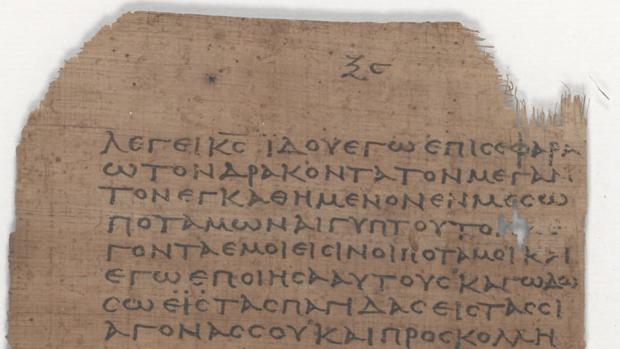 ξϛ
ΛΕΓΕΙΚ̅Ϲ̅ ΪΔΟΥΕΓΩΕΠΙϹΕΦΑΡΑ
ΩΤΟΝΔΡΑΚΟΝΤΑΤΟΝΜΕΓΑΝ
ΤΟΝΕΓΚΑΘΗΜΕΝΟΝΕΝΜΕϹΩ
ΠΟΤΑΜΩΝΑΙΓΥΠΤΟΥΤΟΝ
ΓΟΝΤΑΕΜΟΙΕΙϹΙΝΟΙΠΟΤΑΜΟΙΚΑΙ
ΕΓΩΕΠΟΙΗϹΑΑΥΤΟΥϹΚΑΙΓΩΔΩ
ϹΩΕΪϹΤΑϹΠΑΓΙΔΑϹΕΙϹΤΑϹϹΙ
ΑΓΟΝΑϹϹΟΥΚΑΙΠΡΟϹΚΟΛΛΗ